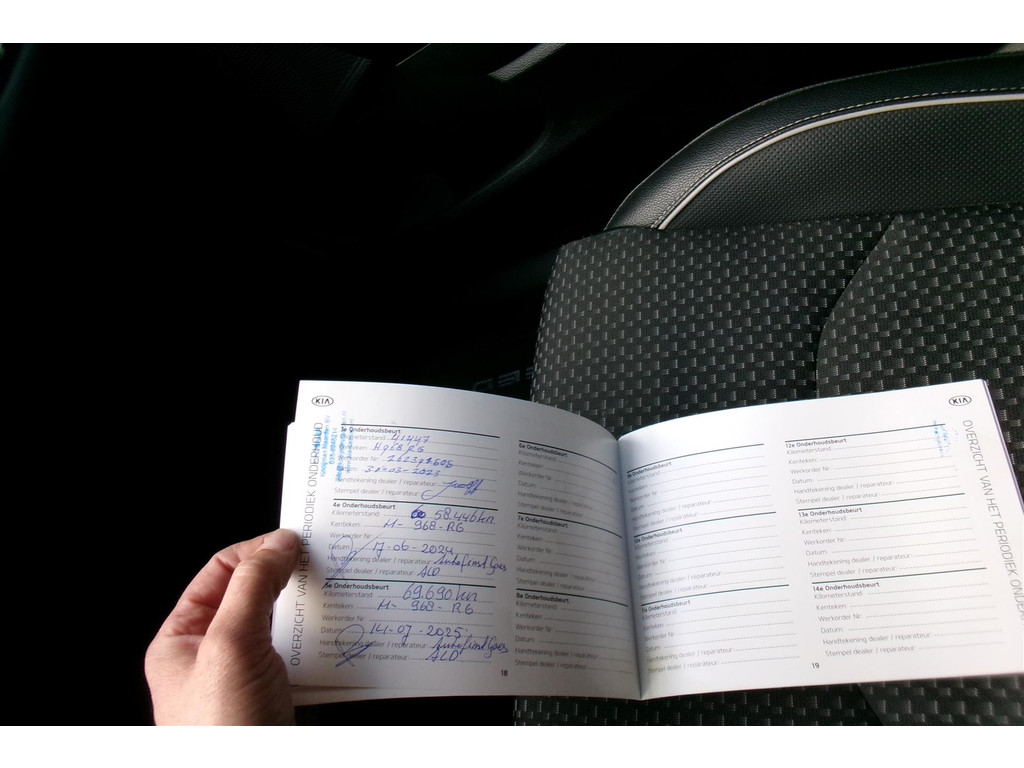 KIA
OVERZICHT VAN HET PERIODIEK ONDERHOUD
3e Onderhoudsbeurt
Kilometerstand 41447
Kenteken: H968RG
Werkorder Nr
Datum -03-2023
Handtekening dealer / reparateur
Stempel dealer / reparateur:
4e Onderhoudsbeurt
Kilometerstand: 58.446 km
Kenteken: H- 968-RG
Werkorder Nr:
Datum: 17-06-2024
Handtekening dealer / reparateur:
Stempel dealer / reparateur: ALD
5e Onderhoudsbeurt
Kilometerstand: 69.690 km
Kenteken: H- 968-RG
Werkorder Nr:
Datum: 14-07-2025
Handtekening dealer / reparateur:
Stempel dealer / reparateur: ALD
6e Onderhoudsbeurt
Kilometerstand:
Kenteken:
Werkorder Nr:
Datum:
Handtekening dealer / reparateur:
Stempel dealer / reparateur:
7e Onderhoudsbeurt
Kilometerstand:
Kenteken:
Werkorder Nr:
Datum:
Handtekening dealer / reparateur:
Stempel dealer / reparateur:
8e Onderhoudsbeurt
Kilometerstand:
Kenteken:
Werkorder Nr:
Datum:
Handtekening dealer / reparateur:
Stempel dealer / reparateur:
18
KIA
OVERZICHT VAN HET PERIODIEK ONDE
9e Onderhoudsbeurt
Kilometerstand:
Kenteken:
Werkorder Nr:
Datum:
Handtekening dealer / reparateur:
Stempel dealer / reparateur:
10e Onderhoudsbeurt
Kilometerstand:
Kenteken:
Werkorder Nr:
Datum:
Handtekening dealer / reparateur:
Stempel dealer / reparateur:
11e Onderhoudsbeurt
Kilometerstand:
Kenteken:
Werkorder Nr:
Datum:
Handtekening dealer / reparateur:
Stempel dealer / reparateur:
12e Onderhoudsbeurt
Kilometerstand:
Kenteken:
Werkorder Nr:
Datum:
Handtekening dealer / reparateur:
Stempel dealer / reparateur:
13e Onderhoudsbeurt
Kilometerstand:
Kenteken:
Werkorder Nr:
Datum:
Handtekening dealer / reparateur:
Stempel dealer / reparateur:
14e Onderhoudsbeurt
Kilometerstand:
Kenteken:
Werkorder Nr:
Datum:
Handtekening dealer / reparateur:
Stempel dealer / reparateur:
19